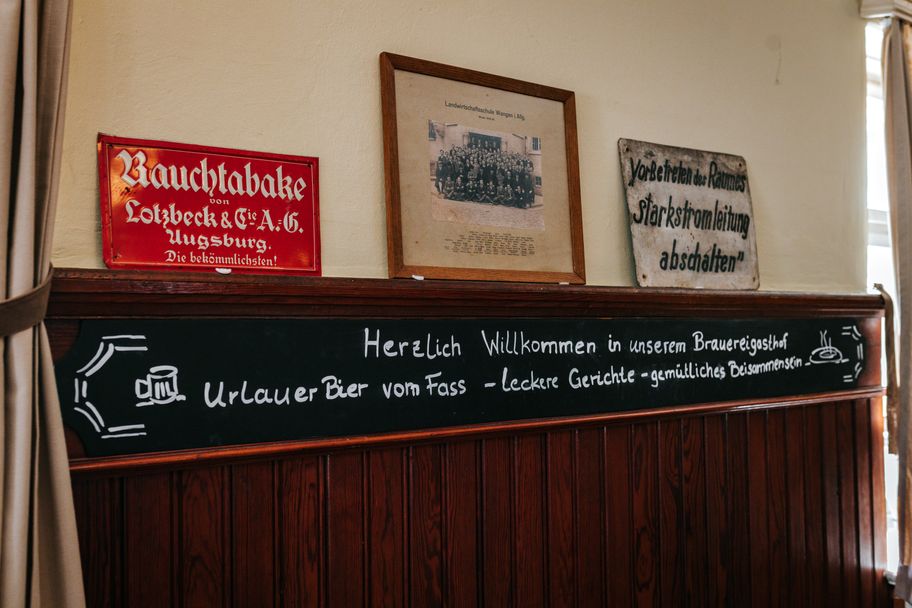 Rauchtabake
von
Lotzbeck & Cie A.-G.
Augsburg.
Die bekömmlichsten!
Landwirtschaftsschule Wangen i. Allg.
Vorbetreten des Raumes
Starkstromleitung
abschalten"
Herzlich Willkommen in unserem Brauereigasthof
Urlauer Bier vom Fass - leckere Gerichte - gemütliches Beisammensein